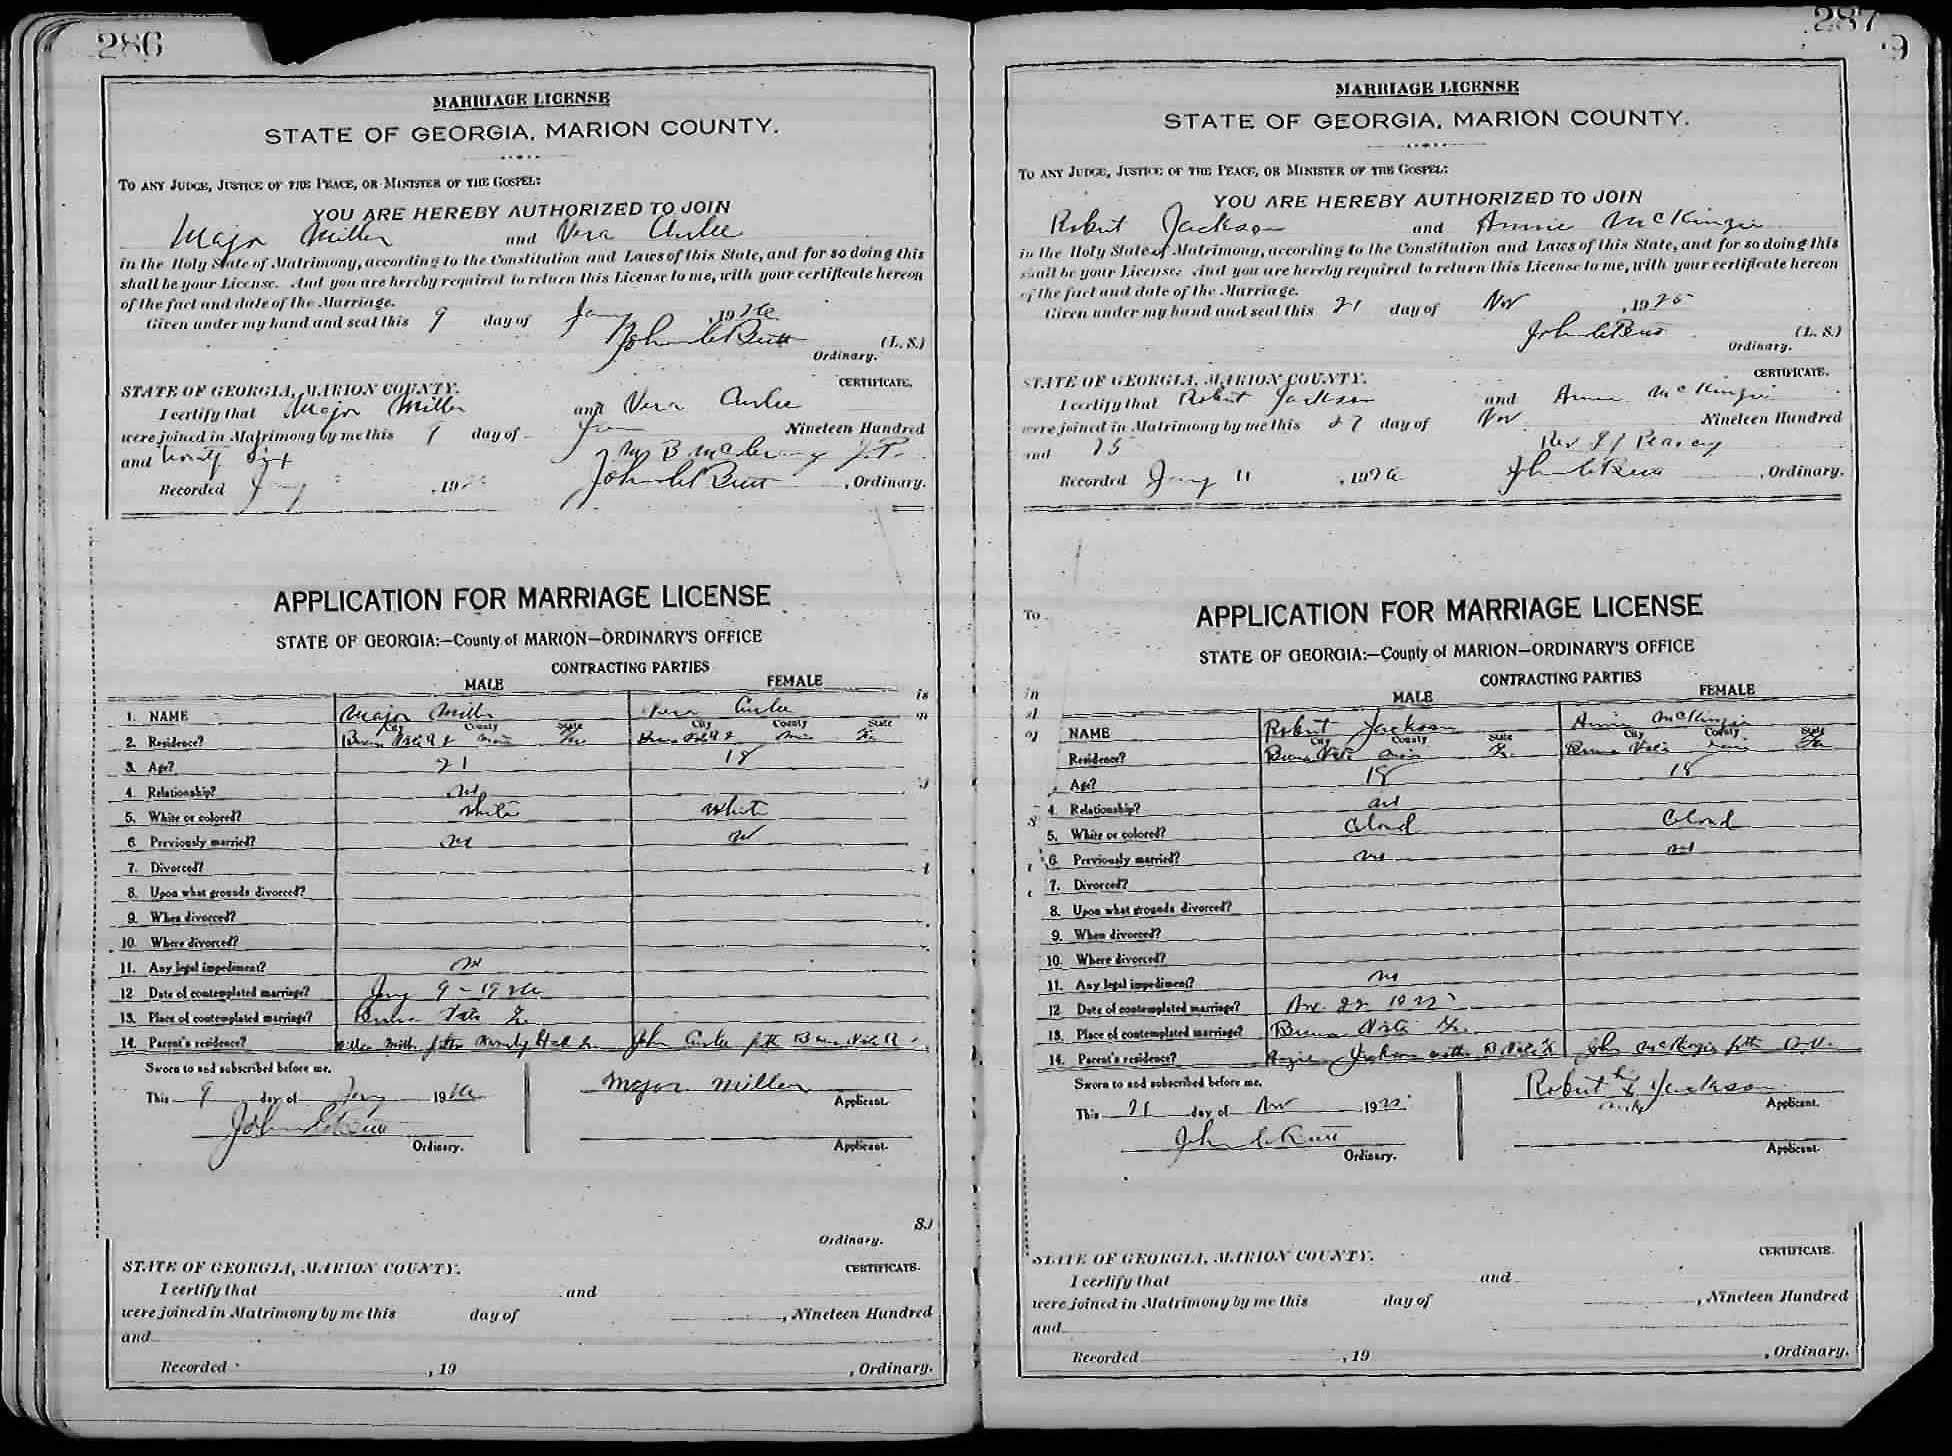 286
MARRIAGE LICENSE
STATE OF GEORGIA, MARION COUNTY.
TO ANY JUDGE, JUSTICE OF THE PEACE, OR MINISTER OF THE GOSPEL:
YOU ARE HEREBY AUTHORIZED TO JOIN
Major Miller and Vera
in the Holy State of Matrimony, according to the Constitution and Laws of this State, and for so doing this
shall be your License. And you are hereby required to return this License to me, with your certificate hereon
of the fact and date of the Marriage.
Given under my hand and seal this 9 day of Jany , 1926
John C Butt (L. S.)
Ordinary.
STATE OF GEORGIA, MARION COUNTY. CERTIFICATE.
I certify that Major Miller and Vera
were joined in Matrimony by me this 9 day of Jan Nineteen Hundred
and twenty six M B J.P.
Recorded , 19 John C Butt , Ordinary.
APPLICATION FOR MARRIAGE LICENSE
STATE OF GEORGIA:—County of MARION—ORDINARY'S OFFICE
CONTRACTING PARTIES
MALE FEMALE
is
1. NAME Major Miller Vera
City County State City County State
2. Residence? Buena Vista Ga
3. Age? 21 18
4. Relationship? no
5. White or colored? White White
6. Previously married? no no
7. Divorced?
8. Upon what grounds divorced?
9. When divorced?
10. Where divorced?
11. Any legal impediment? no
12 Date of contemplated marriage? Jany 9 - 1926
13. Place of contemplated marriage? Buena Vista Ga
14. Parent's residence? John
Sworn to and subscribed before me.
This 9 day of Jany 1926 Major Miller
Applicant.
John C Butt
Ordinary. Applicant.
S.)
Ordinary.
STATE OF GEORGIA, MARION COUNTY. CERTIFICATE.
I certify that and
were joined in Matrimony by me this day of , Nineteen Hundred
and
Recorded , 19 , Ordinary.
287
9
MARRIAGE LICENSE
STATE OF GEORGIA, MARION COUNTY.
TO ANY JUDGE, JUSTICE OF THE PEACE, OR MINISTER OF THE GOSPEL:
YOU ARE HEREBY AUTHORIZED TO JOIN
Robert Jackson and Annie McKinzie
in the Holy State of Matrimony, according to the Constitution and Laws of this State, and for so doing this
shall be your License. And you are hereby required to return this License to me, with your certificate hereon
of the fact and date of the Marriage.
Given under my hand and seal this 21 day of Nov , 1925
John C Butt (L. S.)
Ordinary.
STATE OF GEORGIA, MARION COUNTY. CERTIFICATE.
I certify that Robert Jackson and Annie McKinzie
were joined in Matrimony by me this day of Nov Nineteen Hundred
and 25 Rev
Recorded Jany 11 , 1926 John C Butt , Ordinary.
To
APPLICATION FOR MARRIAGE LICENSE
STATE OF GEORGIA:—County of MARION—ORDINARY'S OFFICE
CONTRACTING PARTIES
MALE FEMALE
in
NAME Robert Jackson Annie McKinzie
City County State City County State
Residence? Buena Vista Ga. Buena Vista Ga
Age? 18 18
4. Relationship? not
5. White or colored? Colord Colord
6. Previously married? no no
7. Divorced?
8. Upon what grounds divorced?
9. When divorced?
10. Where divorced?
11. Any legal impediment? no
12 Date of contemplated marriage? Nov. 22 1925
13. Place of contemplated marriage? Buena Vista Ga.
14. Parent's residence? Jackson John McKinzie
Sworn to and subscribed before me.
This 21 day of Nov 1925 Robert his x mark Jackson
Applicant.
John C Butt
Ordinary. Applicant.
STATE OF GEORGIA, MARION COUNTY. CERTIFICATE.
I certify that and
were joined in Matrimony by me this day of , Nineteen Hundred
and
Recorded , 19 , Ordinary.